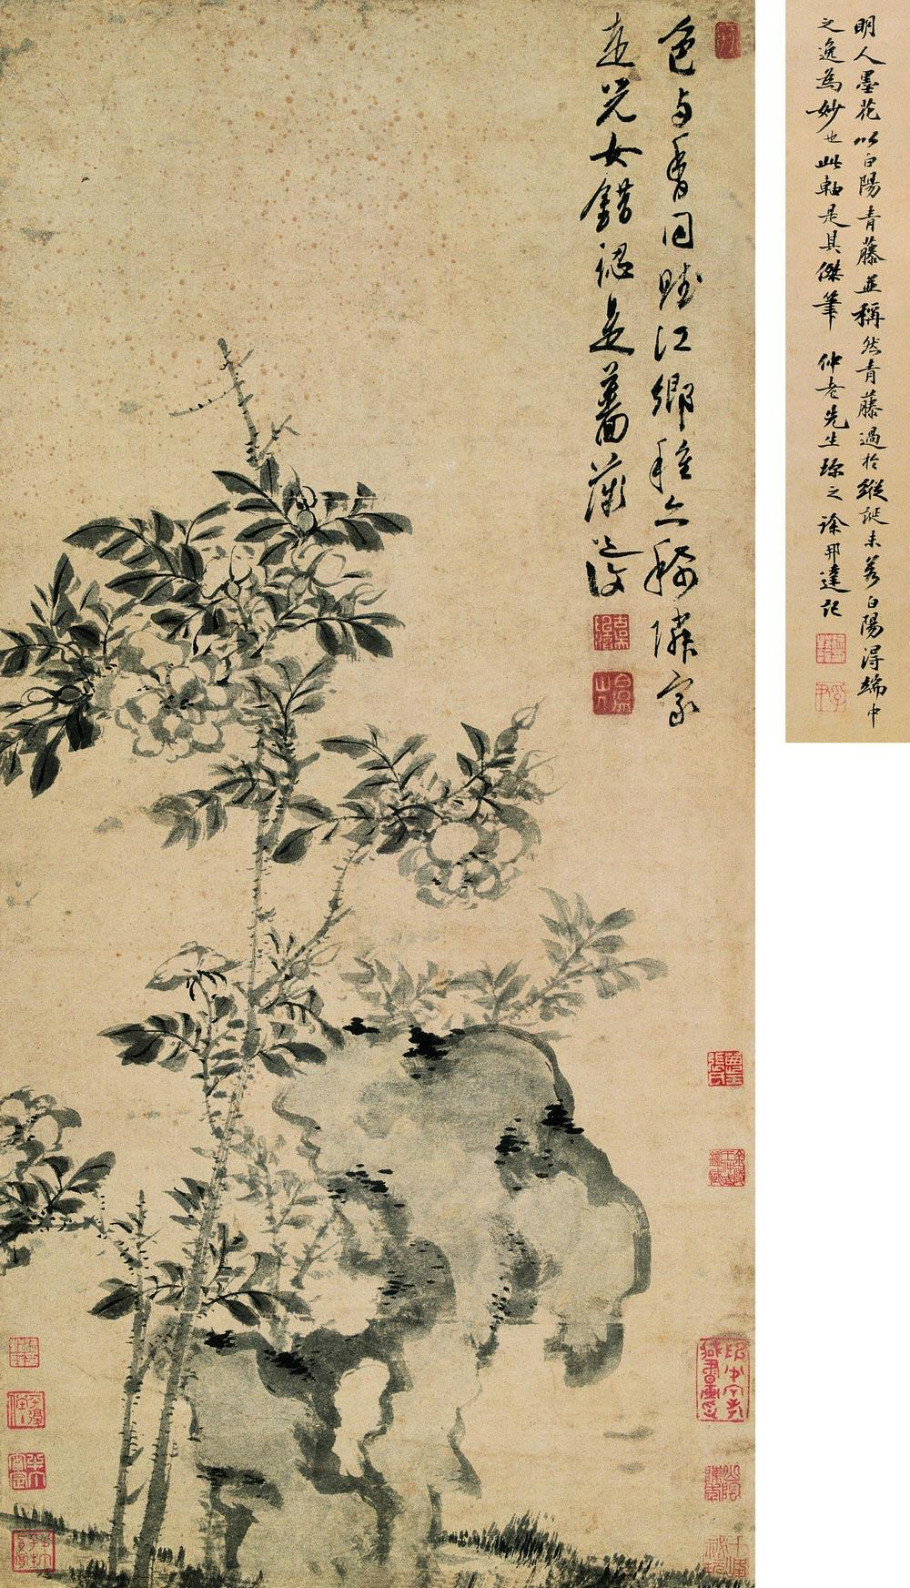 明人墨花以白陽青藤並稱然青藤過於縱誕未若白陽得端中
之逸為妙也此軸是其傑筆 仲老先生珍之徐邦達記
色与香同賦江鄉種亦稀隣家
走兒女錯認是薔薇 道復
白陽山人